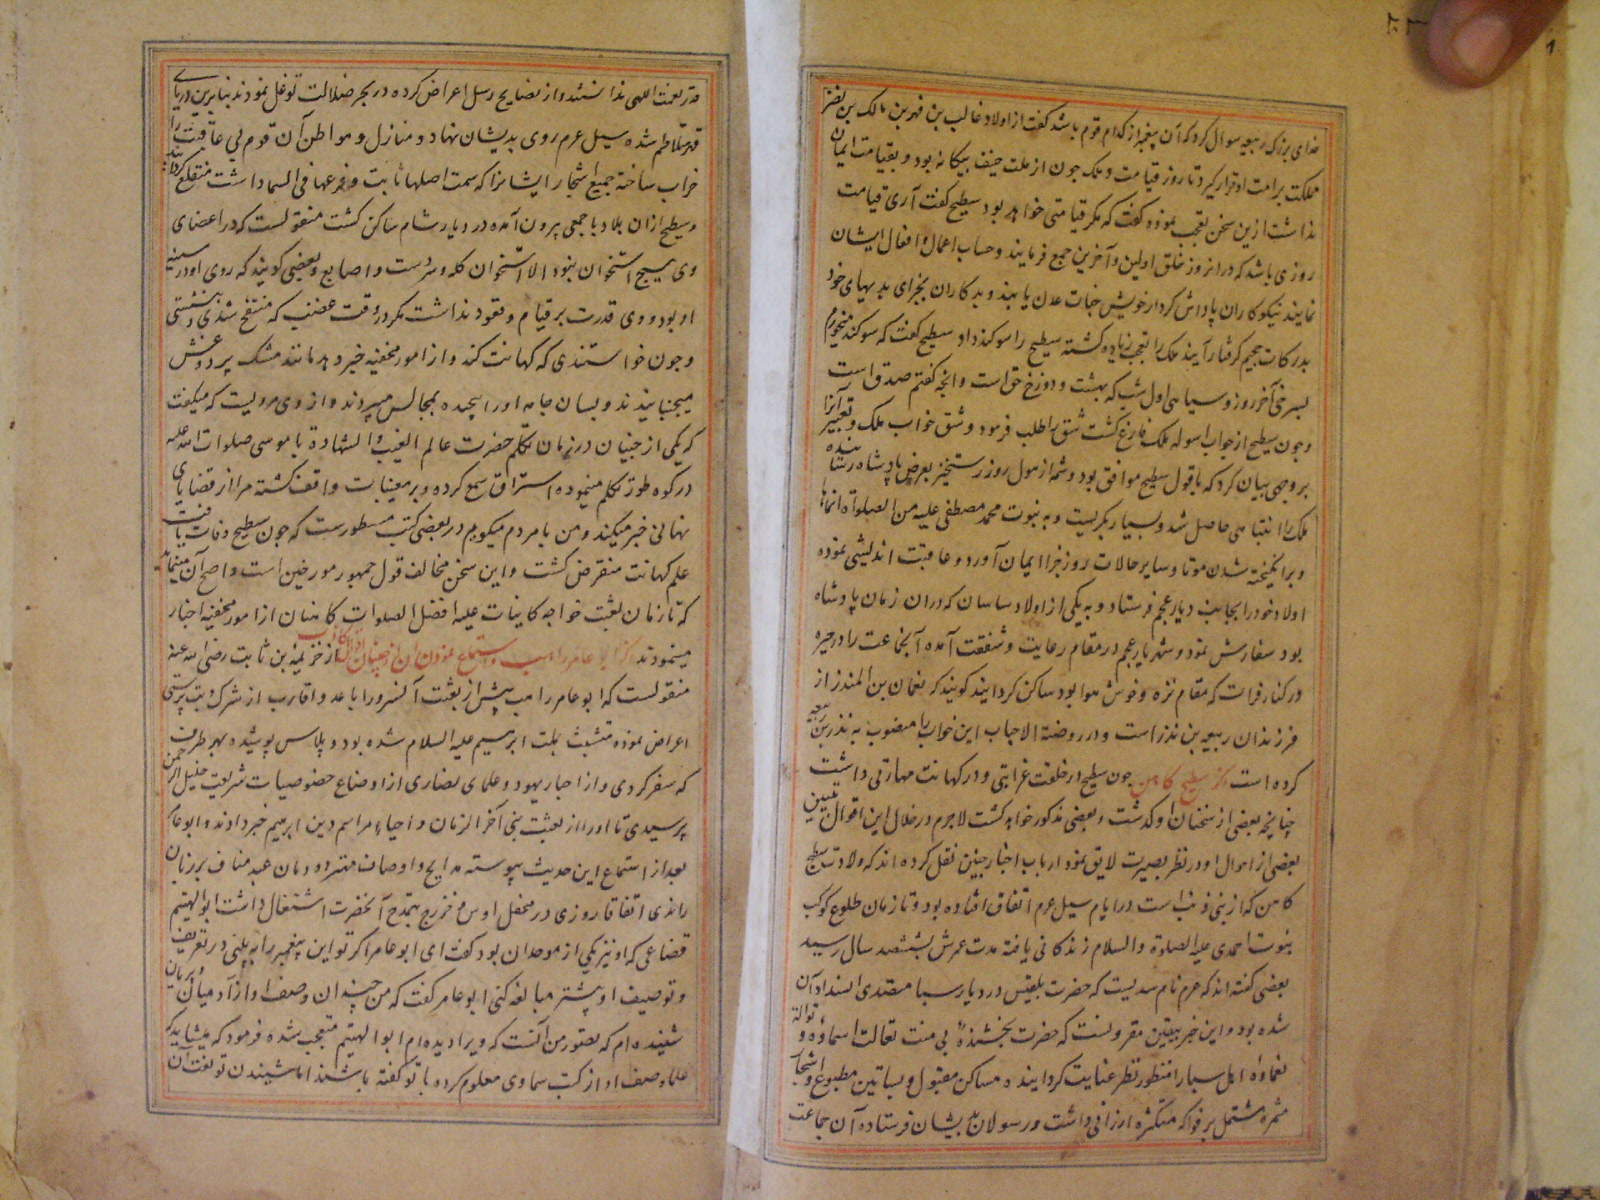 خدای بزرک ربیعه سوال کرد که آن پیغمبر از کدام قوم باشد کفت از اولاد غالب بن فهر بن مالک بن نضر
مملکت بر امت او قرار کیرد تا روز قیامت و ملک چون از ملت حنیف بیکانه بود و بقیامت ایمان
نداشت ازین سخن تعجب نموده کفت که مکر قیامتی خواهد بود سطیح کفت آری قیامت
روزی باشد که در انروز خلق اولین و آخرین جمع فرمایند و حساب اعمال و افعال ایشان
نمایند نیکوکاران پاداش کردار خویش جنات عدن یابند و بدکاران بجزای بدیهای خود
بدرکات جحیم کرفتار آیند ملک را تعجب زیاده کشته سطیح را سوکند داد سطیح کفت که سوکند میخورم
بسرخی آخر روز و سیاهی اول شب که بهشت و دوزخ حق است و انچه کفتم صدق است
و چون سطیح از جواب اسوله ملک فارغ کشت شق را طلب فرمود و شق خواب ملک و تعبیر آنرا
بر وجهی بیان کرد که با قول سطیح موافق بود و شمه از هول روز رستخیز بعرض پادشاه رسانیده
ملک را انتباهی حاصل شد و بسیار بکریست و به نبوت محمد مصطفی علیه من الصلوة انماها
و برانکیخته شدن موتا و سایر حالات روز جزا ایمان آورد و عاقبت اندیشی نموده
اولاد خود را بجانب دیار عجم فرستاد و به یکی از اولاد ساسان که دران زمان پادشاه
بود سفارش نمود و شهریار عجم در مقام رعایت و شفقت آمده آنجماعت را در حیره
در کنار فرات که مقام نزه و خوش هوا بود ساکن کردانیدند کویند که نعمان بن المنذر از
فرزندان ربیعه بن نذر است و در روضة الاحباب این خواب را منسوب به نذر بن ربیعه
کرده است ذکر سطیح کاهن چون سطیح در خلقت غرابتی و در کهانت مهارتی داشت
چنانچه بعضی از سخنان او کذشت و بعضی مذکور خواهد کشت لاجرم در خلال این اقوال تبیین
بعضی از احوال او در نظر بصیرت لایق نمود ارباب اخبار چنین نقل کرده اند که ولادت سطیح
کاهن که از بنی ذئب است در ایام سیل عرم اتفاق افتاده بود و تا زمان طلوع کوکب
نبوت احمدی علیه الصلوة والسلام زندکانی یافته مدت عمرش بششصد سال رسید
بعضی کفته اند که عرم نام سدیست که حضرت بلقیس در دیار سبا متصدی انسداد آن
شده بود و این خبر بیقین مقرونست که حضرت بخشنده بی منت تعالت اسماؤه و توالت
نعماؤه اهل سبا را منظور نظر عنایت کردانیده مساکن مقبول و بساتین مطبوع و اشجار
مثمره مشتمل بر فواکه متکثره ارزانی داشت و رسولان بدیشان فرستاده آن جماعت
قدر نعمت الهی ندانستند و از نصایح رسل اعراض کرده در بحر ضلالت توغل نمودند بنابرین دریای
قهر متلاطم شده سیل عرم روی بدیشان نهاد و منازل و مواطن آن قوم بی عاقبت را
خراب ساخته جمیع اشجار ایشانرا که سمت اصلها ثابت و فرعها فی السماء داشت منقلع کردانید
و سطیح ازان بلاد با جمعی بیرون آمده در دیار شام ساکن کشت منقولست که در اعضای
وی هیچ استخوان نبود الا استخوان کله و سر دست و اصابع و بعضی کویند که روی او در سینه
او بود و وی قدرت بر قیام و قعود نداشت مکر در وقت غضب که منتفخ شدی و نشستی
و چون خواستندی که کهانت کند و از امور مخفیه خبر دهد مانند مشک پر دوغش
میجنبانیدند و بسان جامه او را پیچیده بمجالس میبردند و از وی مرویست که میکفت
که یکی از جنیان در زمان تکلم حضرت عالم الغیب و الشهادة با موسی صلوات الله علیه
در کوه طور تکلم مینموده استراق سمع کرده و بر مغیبات واقف کشته مرا از قضایای
نهانی خبر میکند و من با مردم میکویم در بعضی کتب مسطورست که چون سطیح وفات یافت
علم کهانت منقرض کشت و این سخن مخالف قول جمهور مورخین است و اصح آن مینماید
که تا زمان بعثت خواجه کاینات علیه افضل الصلوات کاهنان از امور مخفیه اخبار
مینمودند ذکر ابو عامر راهب و استماع نمودن آن از خزیمه بن ثابت رضی الله عنه
منقولست که ابو عامر راهب پیش از بعثت آنسرور اباعد و اقارب از شرک و بت پرستی
اعراض نموده متشبث بملت ابرهیم علیه السلام شده بود و پلاس پوشیده بهر طرف
که سفر کردی و از احبار یهود و علمای نصاری از اوضاع خصوصیات شریعت خلیل الرحمن
پرسیدی تا او را از بعثت نبی آخر الزمان و احیاء مراسم دین ابرهیم خبر دادند و ابو عامر
بعد از استماع این حدیث پیوسته مدایح و اوصاف مهتر دودمان عبد مناف بر زبان
راندی اتفاقا روزی در محفل اوس و خزرج بتمدح آنحضرت اشتغال داشت ابو الهیثم
قضاعی که او نیز یکی از موحدان بود کفت ای ابو عامر اکر تو این پیغمبر را بیابی در تعریف
و توصیف او بیشتر مبالغه کنی ابو عامر کفت که من چندان وصف او از آدمیان و پریان
شنیده ام که بتصور من آنست که ویرا دیده ام ابو الهیثم متعجب شده فرمود که میشاید که
علما وصف او از کتب سماوی معلوم کرده با تو کفته باشند اما شنیدن تو نعت آن